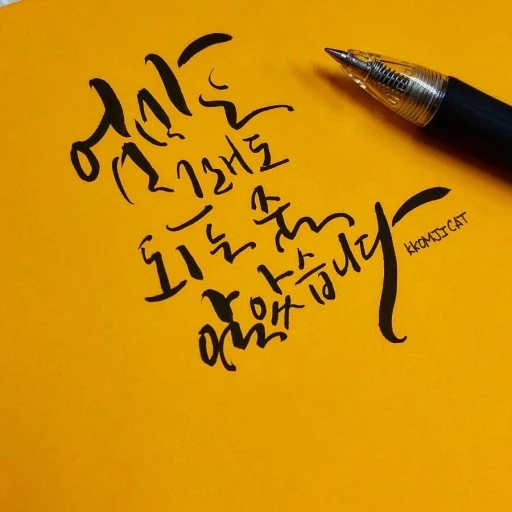 엄마는
그래도
되는 줄
알았습니다
KKOMJICAT